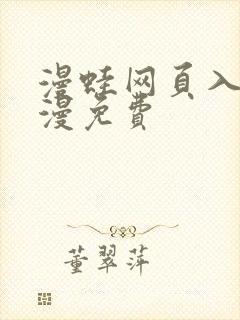 漫蛙网页入
漫免费
董翠萍